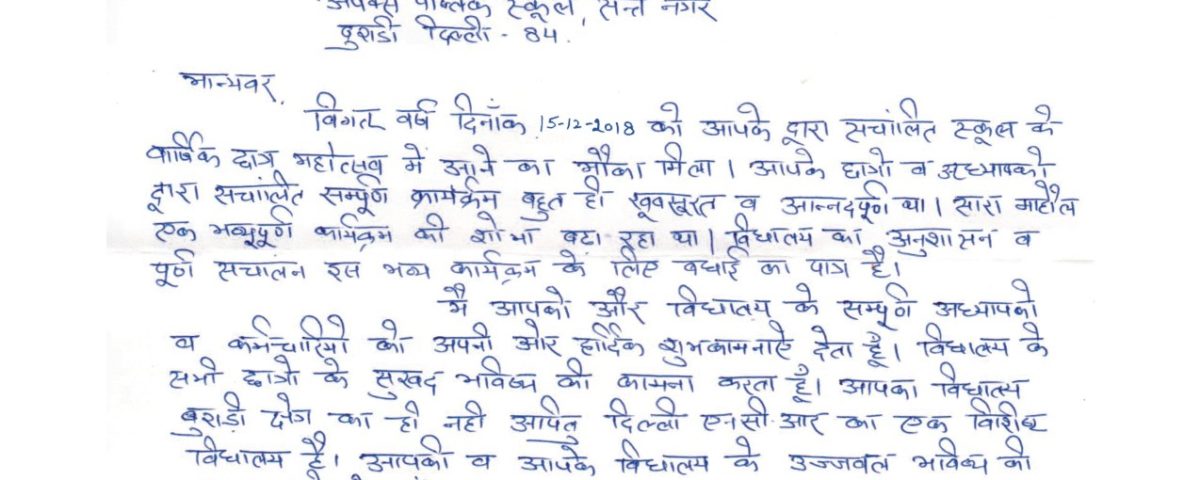 अपैक्स पब्लिक स्कूल, सन्त नगर
बुराडी दिल्ली - 84.
मान्यवर,
विगत वर्ष दिनाँक 15-12-2018 को आपके द्वारा सचांलित स्कूल के
वार्षिक छात्र महोत्सव में आने का मौका मिला। आपके छात्रो व अध्यापको
द्वारा सचांलित सम्पूर्ण कार्यक्रम बहुत ही खूबसूरत व आन्नदपूर्ण था। सारा माहौल
एक भव्यपूर्ण कार्यक्रम की शोभा बढा रहा था। विधालय का अनुशासन व
पूर्ण सचांलन इस भव्य कार्यक्रम के लिए बधाई का पात्र है।
मै आपको और विधालय के सम्पूर्ण अध्यापको
व कर्मचारियो को अपनी ओर हार्दिक शुभकामनाऐ देता हूँ। विधालय के
सभी छात्रो के सुखद भविष्य की कामना करता हूँ। आपका विधालय
बुराडी क्षेत्र का ही नही अपितु दिल्ली एन.सी.आर का एक विशिष्ट
विधालय है। आपकी व आपके विधालय के उज्जवल भविष्य की